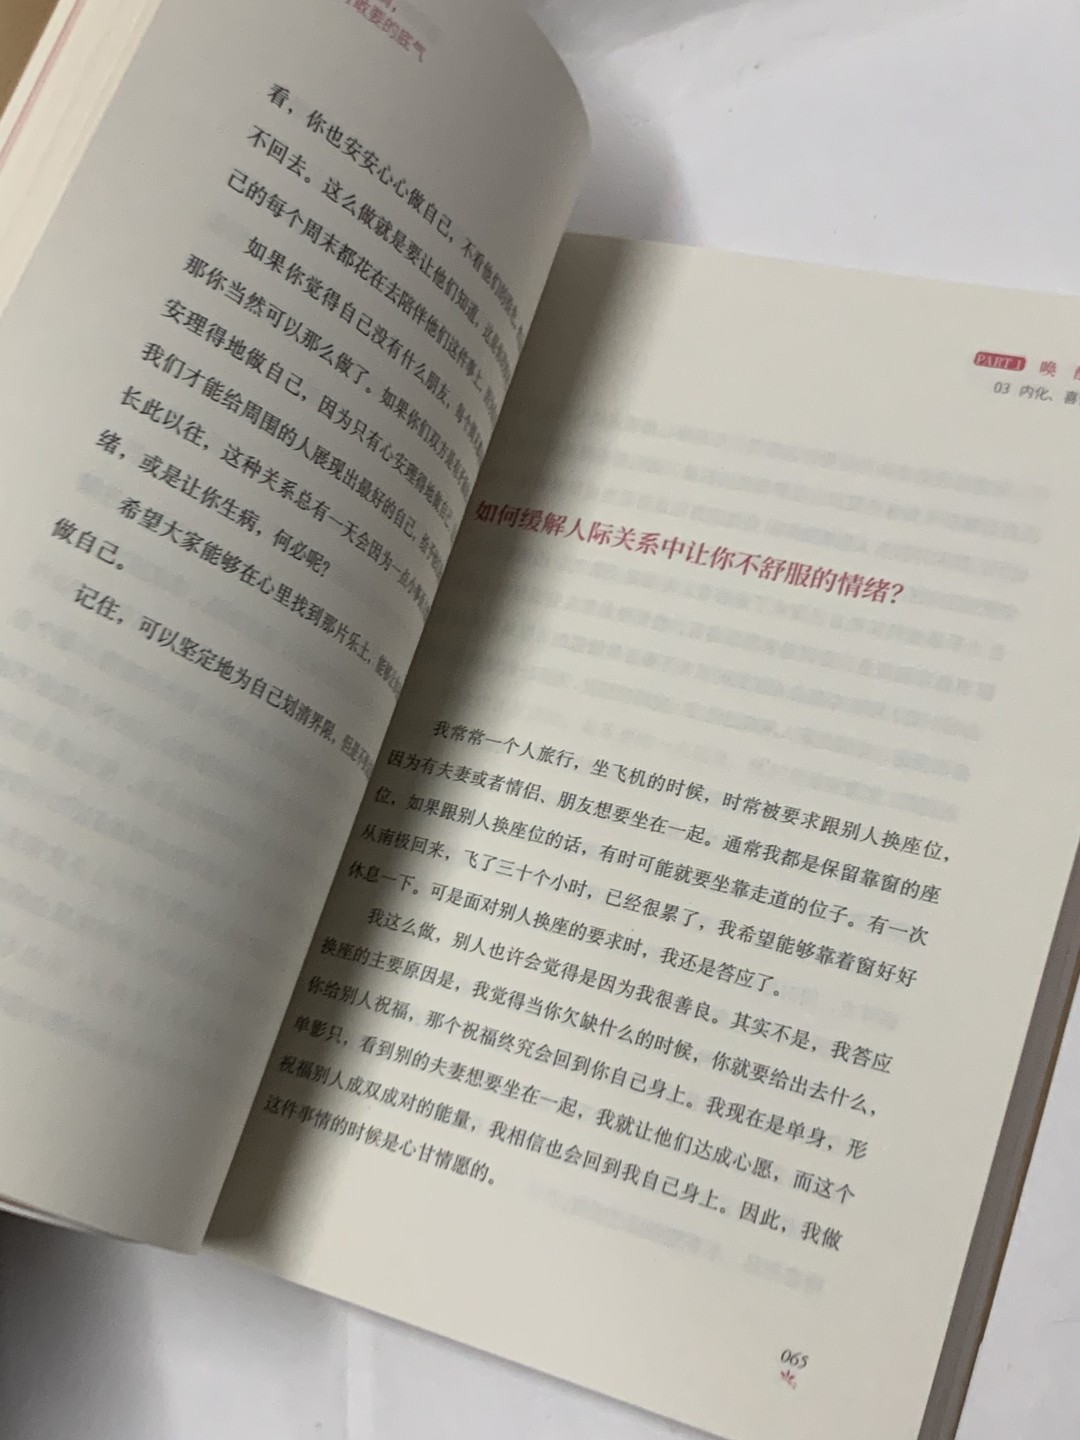 敢要的底气
看，你也安安心心做自己，不看他们的
不回去。这么做就是要让他们知道，这是
己的每个周末都花在去陪伴他们这件事上，
如果你觉得自己没有什么朋友，每个周末
那你当然可以那么做了。如果你们双方是有不
安理得地做自己，因为只有心安理得地做自己，
我们才能给周围的人展现出最好的自己，给予
长此以往，这种关系总有一天会因为一点小事
绪，或是让你生病，何必呢？
希望大家能够在心里找到那片乐土，能够
做自己。
记住，可以坚定地为自己划清界限，但是不
PART 1 唤
03 内化、喜
如何缓解人际关系中让你不舒服的情绪？
我常常一个人旅行，坐飞机的时候，时常被要求跟别人换座位，
因为有夫妻或者情侣、朋友想要坐在一起。通常我都是保留靠窗的座
位，如果跟别人换座位的话，有时可能就要坐靠走道的位子。有一次
从南极回来，飞了三十个小时，已经很累了，我希望能够靠着窗好好
休息一下。可是面对别人换座的要求时，我还是答应了。
我这么做，别人也许会觉得是因为我很善良。其实不是，我答应
换座的主要原因是，我觉得当你欠缺什么的时候，你就要给出去什么，
你给别人祝福，那个祝福终究会回到你自己身上。我现在是单身，形
单影只，看到别的夫妻想要坐在一起，我就让他们达成心愿，而这个
祝福别人成双成对的能量，我相信也会回到我自己身上。因此，我做
这件事情的时候是心甘情愿的。
065